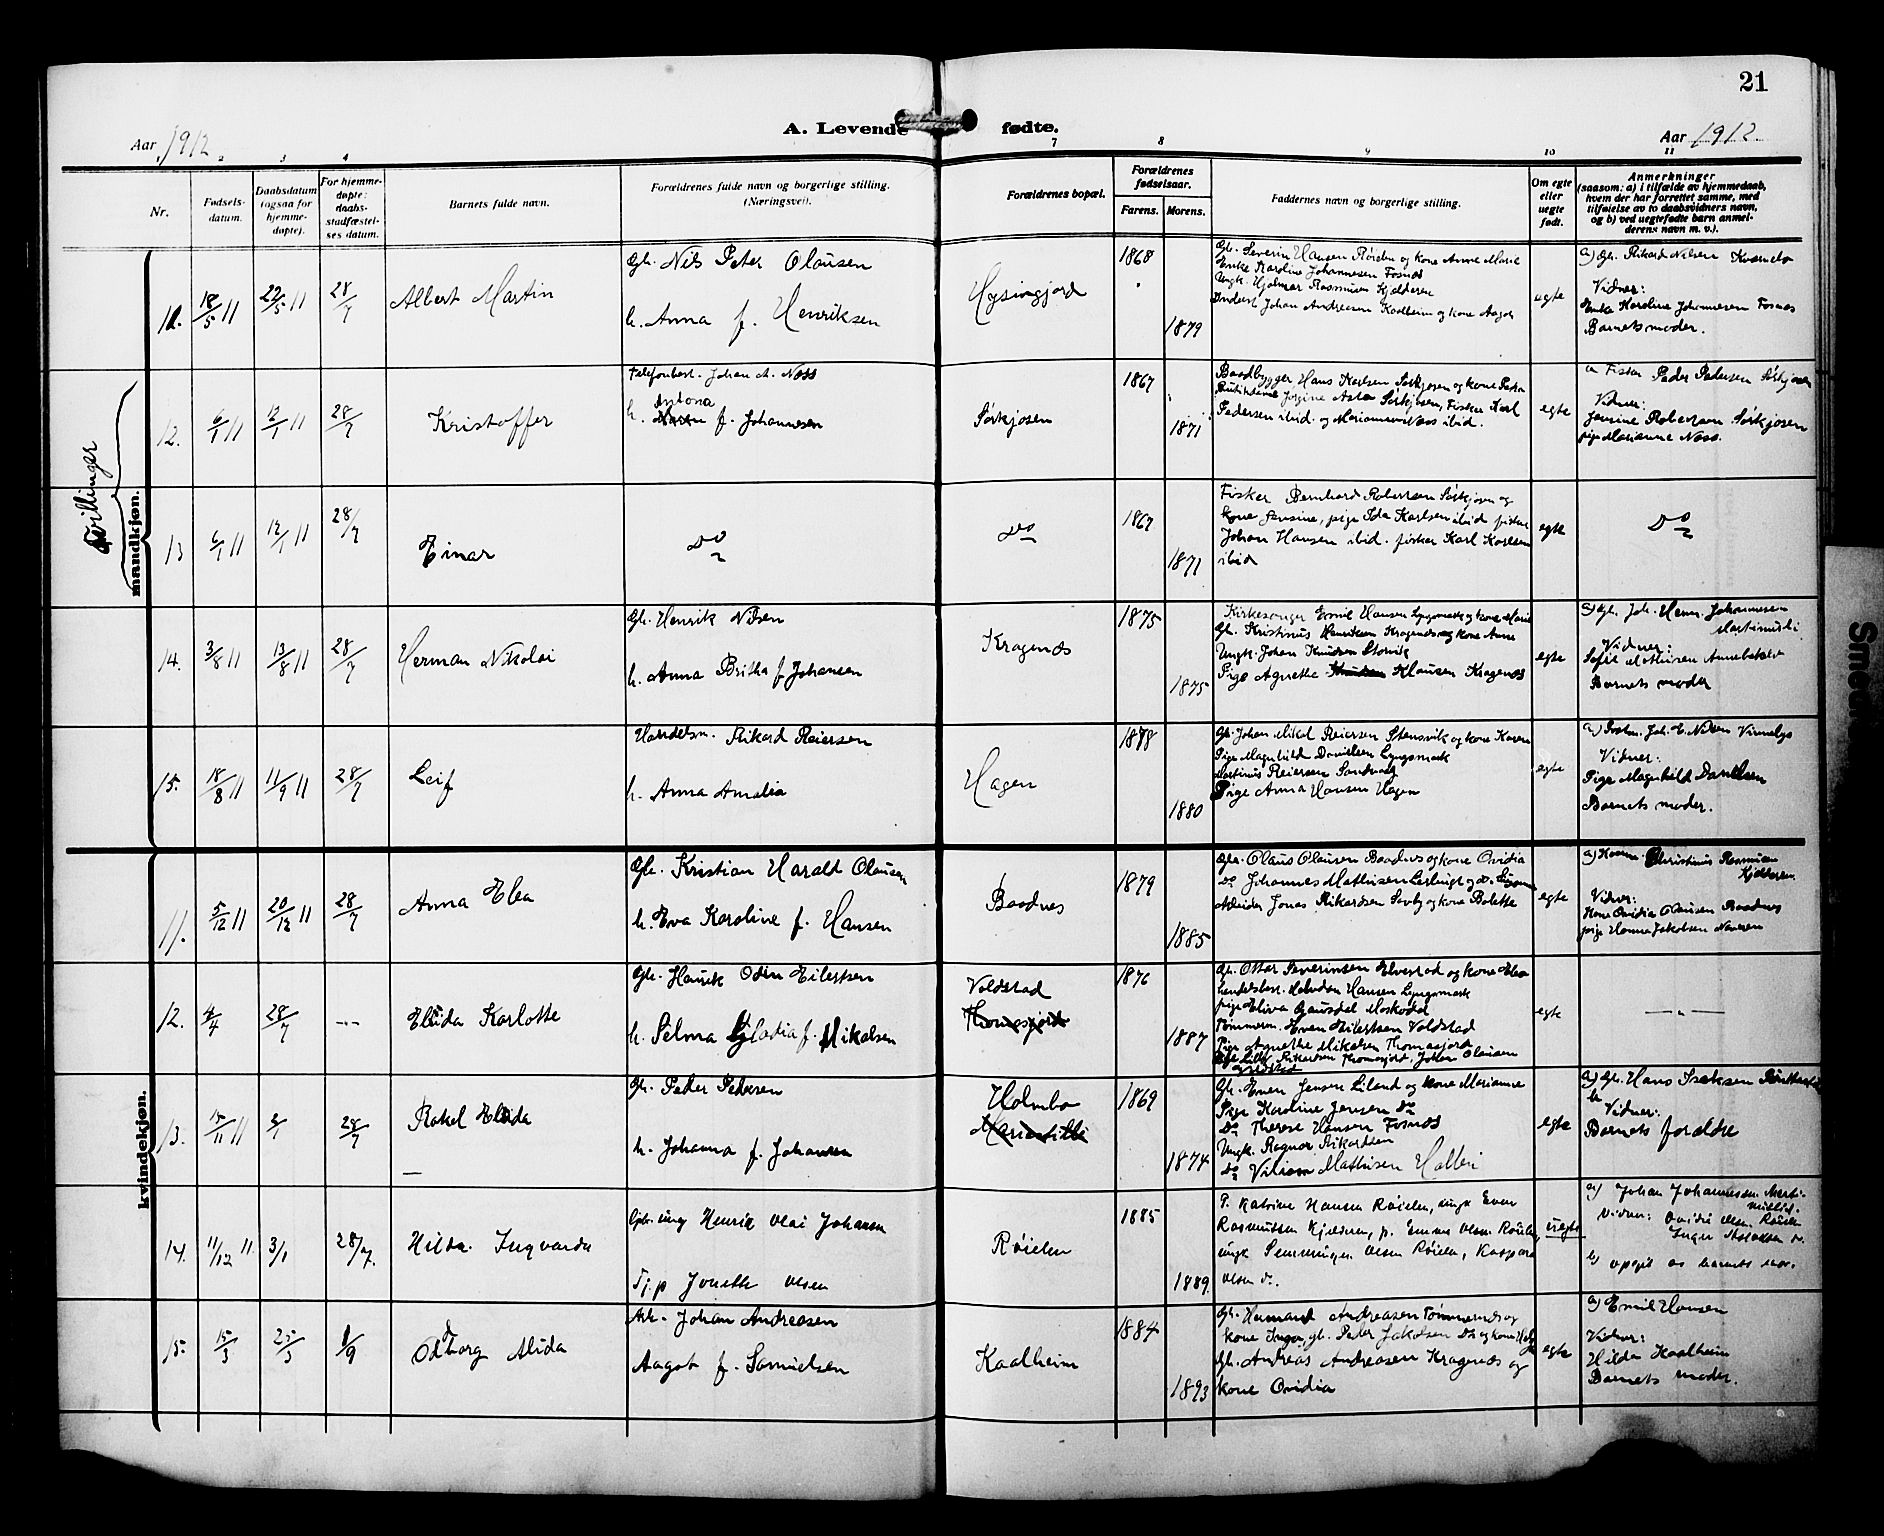 21
A. Levende fødte.
Aar 1912
Aar 1912
1 2 3 4 7 8 9 10 11
Nr.
Fødsels-
datum.
Daabsdatum
(ogsaa for
hjemme-
døpte).
For hjemme-
døpte:
daabs-
stadfæstel-
ses datum.
Barnets fulde navn.
Forældrenes fulde navn og borgerlige stilling.
(Næringsvei).
Forældrenes bopæl.
Forældrenes
fødselsaar.
Farens. Morens.
Faddernes navn og borgerlige stilling.
Om egte
eller
uegte
født.
Anmerkninger
(saasom: a) i tilfælde av hjemmedaab,
hvem der har forrettet samme, med
tilføielse av to daabsvidners navn,
og b) ved uegtefødte barn anmel-
derens navn m. v.).
mandkjøn.
11. 18/5 11 22/5 11 28/7
Albert Martin
Gb. Nils Peter Olausen
h. Anna f. Henriksen
1868
1879
Gb. Severin Hansen Røielen og kone Anne Marie
Enke Karoline Johannesen Fosnæs
Ungk. Hjalmar Rasmussen Kjelderen
Inderst Johan Andreasen Kaalheim og kone Aagot
egte
a) Gb. Rikard Nilsen
Vidner:
Enke Karoline Johannesen Fosnæs
Barnets moder.
Tvillinger
12. 6/1 11 12/1 11 28/7
Kristoffer
Telefonbest. Johan A. Næss
Antona
h. f. Johannesen
Sørkjosen
1867
1871
Baadbygger Hans Karlsen Sørkjosen og kone Petra
Asta Sørkjosen, Fisker Karl
Pedersen ibid. og Marianne Næss ibid.
egte
a Fisker Peder Pedersen Sørkjosen
Vidner:
Jensine Robertsen Sørkjosen
pige Marianne Næss.
13 6/1 11 12/1 11 28/7
Einar
Do
Do
1867
1871
Fisker Bernhard Robertsen Sørkjosen og
kone Jensine, pige Ida Karlsen ibid fisker
Johan Hansen ibid. fisker Karl Karlsen
ibid
egte
Do
14. 3/8 11 13/8 11 28/7
Herman Nikolai
Gb. Henrik Nilsen
h. Anna Britha f. Johansen
Kragenæs
1875
1875
Kirkesanger Emil Hansen Lyngsmark og kone Marie
Gb. Kristinus Henriksen Kragenæs og kone Anne
Ungk. Johan Knudsen Storvik
Pige Agnethe Klausen Kragenæs
egte
a) Gb. Joh. Henr. Johannesen
Vidner:
Sofie Mathisen
Barnets moder
15. 18/8 11 11/9 11 28/7
Leif
Handelsm. Rikard Reiersen
h. Anna Amalia
Hagen
1878
1880
Gb. Johan Mikal Reiersen Stensvik og kone Karen
Pige Magnhild Danielsen Lyngsmark
Martinus Reiersen Sandvag
Pige Anna Hansen Hagen
egte
a) Joh. E. Nilsen
Vidner:
Pige Magnhild Danielsen
Barnets moder.
kvindekjøn.
11. 5/12 11 20/12 11 28/7
Anna Elea
Gb. Kristian Harald Olausen
h. Eva Karoline f. Hansen
Baadnes
1879
1885
Gb. Olaus Olausen Baadnes og kone Ovidia
Do Johannes Mathisen
Arbeider Jonas Rikardsen Sørby og kone Bolette
egte
a) Christinus Rasmussen
Kjelderen
Vidner:
Kone Ovidia Olausen Baadnes
pige Hanna Jakobsen Naveren
12. 4/4 28/7 ---
Elida Karlotte
Gb. Hansik Odin Eilertsen
h. Selma f. Mikalsen
Voldstad
Thomasjord
1876
1887
Gb. Ottar Severinsen Elvestad og kone Elea
Halvdan Hansen Lyngsmark
pige Eliva Gausdal Moskodal
Tømmerm. Even Eilertsen Voldstad
Pige Agnethe Mikalsen Thomasjord
Rikardsen Thomasjord, Johan Olaussen
Voldstad
egte
—„—
13. 15/11 11 2/1 28/7
Rakel Elida
Gb. Peder Pedersen
h. Johanna f. Johansen
Holmbo
1869
1874
Gb. Even Jensen Liland og kone Marianne
Pige Karoline Jensen Do
Do Therese Hansen Fosnæs
Ungk. Ragnar Rikardsen
Do Viliam Mathisen Holteri
egte
a) Gb. Hans Isaksen
Vidner:
Barnets foreldre
14. 11/12 11. 3/1 28/7.
Hilda Ingvarda
ung Henrik Olai Johansen
Tj.p Jonette Olsen
Røielen
1885
1889.
P. Katrine Hansen Røielen, ungk Evan
Rasmussen Kjelderen, p. Emma Olsen Røielen,
ungk Semminger Olsen Røielen, Kaspara
Olsen Do.
uegte
a) Johan Johannessen
Vidner: Ovidie Olsen Røielen
Inger
b) opgit av barnets mor.
15. 15/3 25/3 1/9
Odborg Alida
Arb. Johan Andreasen
Aagot f. Samuelsen
Kaalheim
1884
1893
Gb. Hermand Andreasen Tømmernes og
kone Inga, gb. Peder Jakobsen Do og kone
Gb. Andreas Andreasen Kragenæs og
kone Ovidia
egte
a) Emil Hansen
Vidner:
Hilda Kaalheim
Barnets moder.